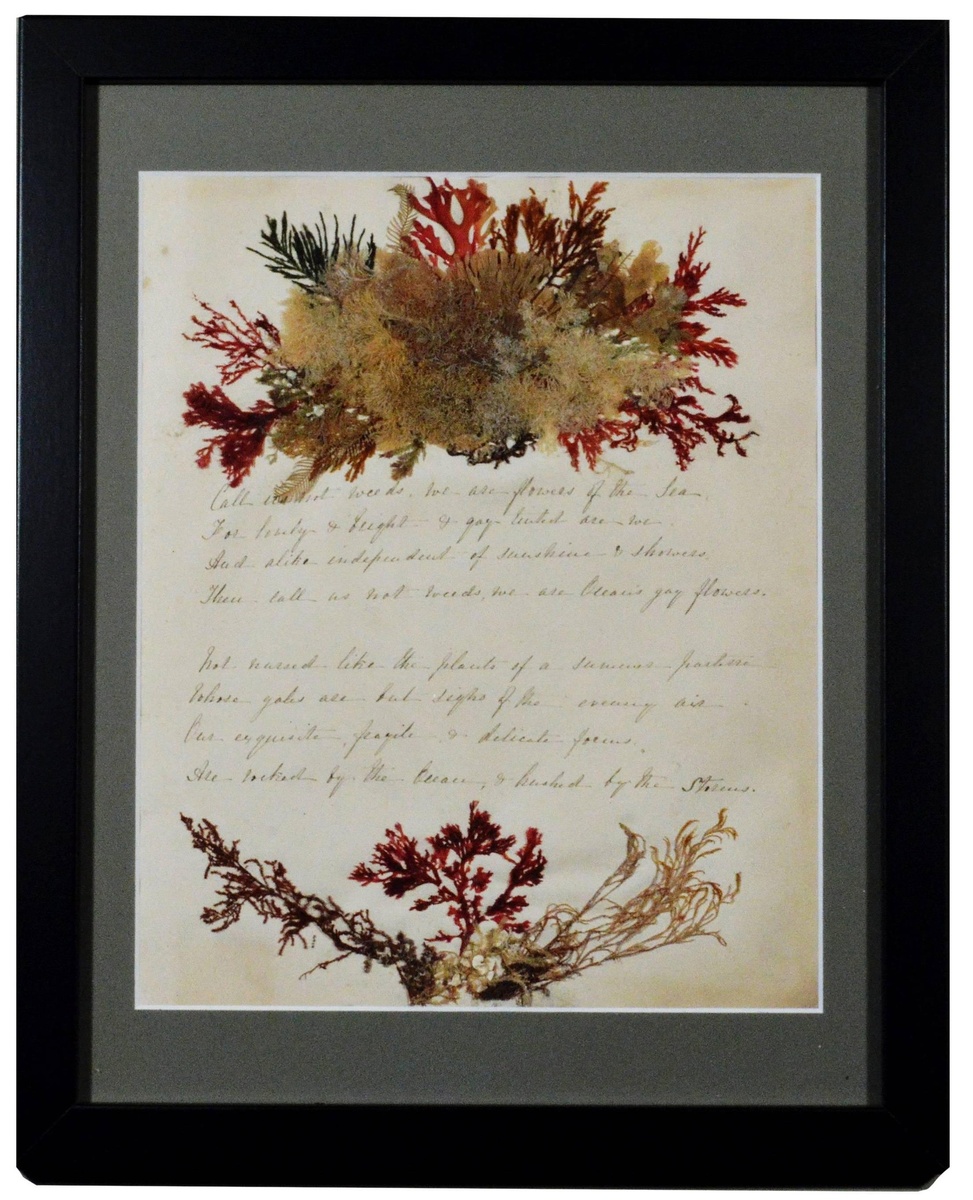 Call us not weeds, we are flowers of the Sea.
For lovely & bright & gay tinted are we.
And alike independent of sunshine & showers.
Then call us not weeds, we are Ocean's gay flowers.
Not nursed like the plants of a summer parterre
Whose gales are but sighs of the evening air
Our exquisite, fragile & delicate forms,
Are rocked by the Ocean, & hushed by the Storms.